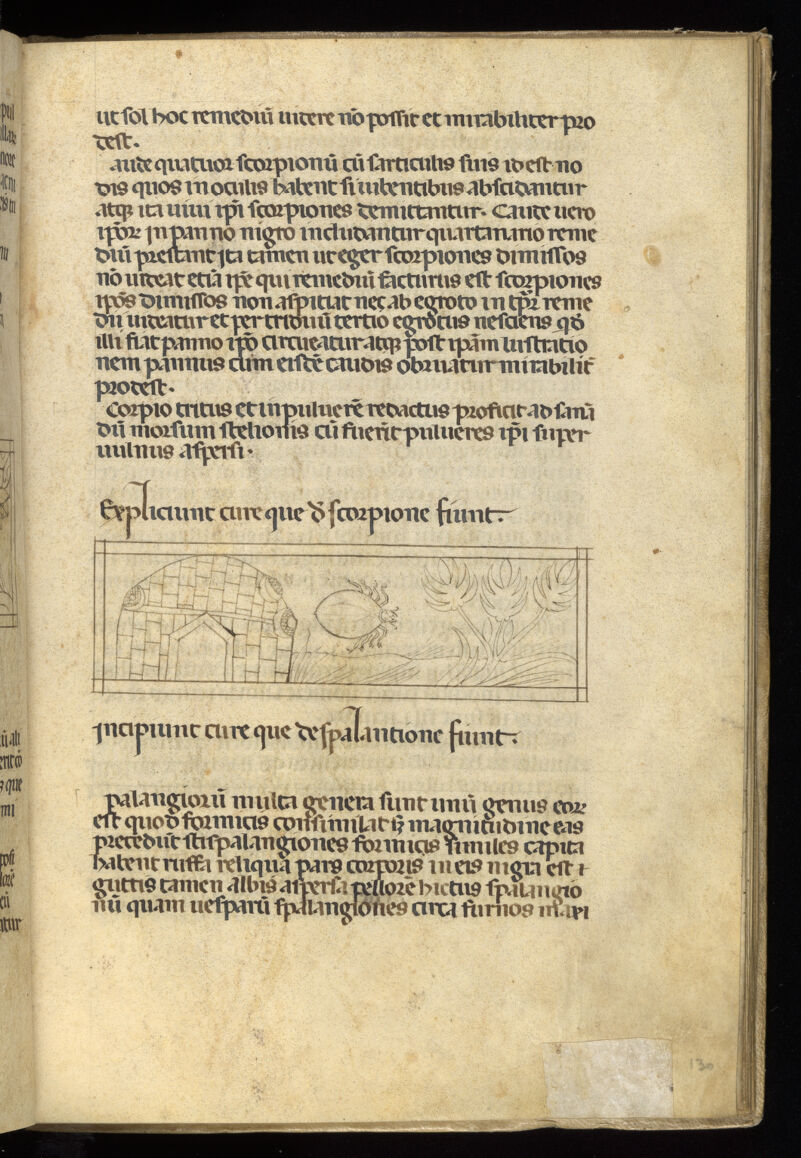 ut sol hoc remediū uitere nō possit et mirabiliter pro
dest.
aude quatuor scorpionū cū sarticulis suis id est no
dis quos in oculis habent si iubentibus abscidantur
atqꝫ ita uiui ip̄i scorpiones demittantur. Caude uero
ip̄oꝝ in panno nigro includantur quartanario reme
diū prestant ita tamen ut eger scorpiones dimissos
nō uideat etiā ip̄e qui remediū facturus est scorpiones
ip̄os dimissos non aspitiat nec ab egroto in tp̄r reme
dii uideatur et per triduū tertio egrotus nesciens qđ
illi fiat panno ip̄o circueatur atqꝫ post ip̄am lustratio
nem pannus cum eisdē caudis obruatur mirabilit̄
prodest.
Corpio tritus et in puluerē redactus proficit ad sanā
dū morsum stelionis cū fuerīt pulueres ip̄i super
uulnus aspersi.
Expliciunt cure que đ scorpione fiunt.
Incipiunt cure que de spalantione fiunt.
palangiorū multa genera sunt unū genus eoꝝ
est quod formicis consimilat sꝫ magnitudine eas
precedūt sti spalangiones formicis similes capita
habent ruffa reliqua pars corporis in eis nigra est ⁊
guttis tamen albis aspersa pellorē hictus spalangio
nū quam uesparū spalangiones circa furnos maxi
130